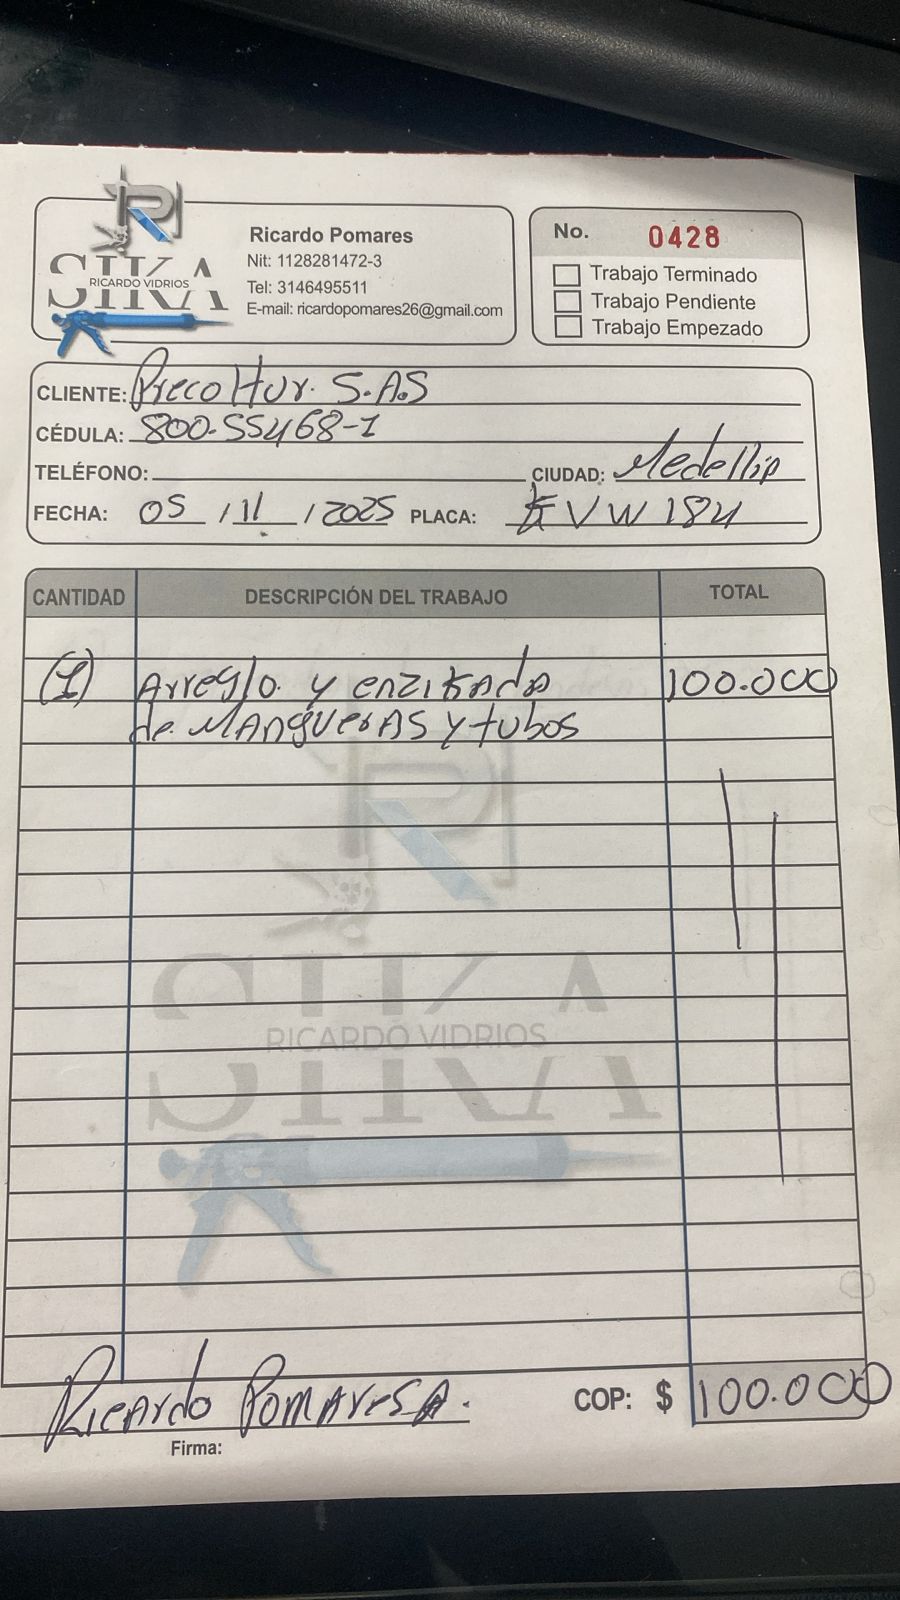 SIKA
RICARDO VIDRIOS
Ricardo Pomares
Nit: 1128281472-3
Tel: 3146495511
E-mail: ricardopomares26@gmail.com
No. 0428
Trabajo Terminado
Trabajo Pendiente
Trabajo Empezado
CLIENTE: Precoltur. S.A.S
CÉDULA: 800.55468-1
TELÉFONO: CIUDAD: Medellin
FECHA: 05 / 11 / 2025 PLACA: EVW 184
CANTIDAD DESCRIPCIÓN DEL TRABAJO TOTAL
(1) Arreglo. y enzikada 100.000
de. MANgUerAS y tubos
SIKA
RICARDO VIDRIOS
Ricardo Pomares A.
COP: $ 100.000
Firma: